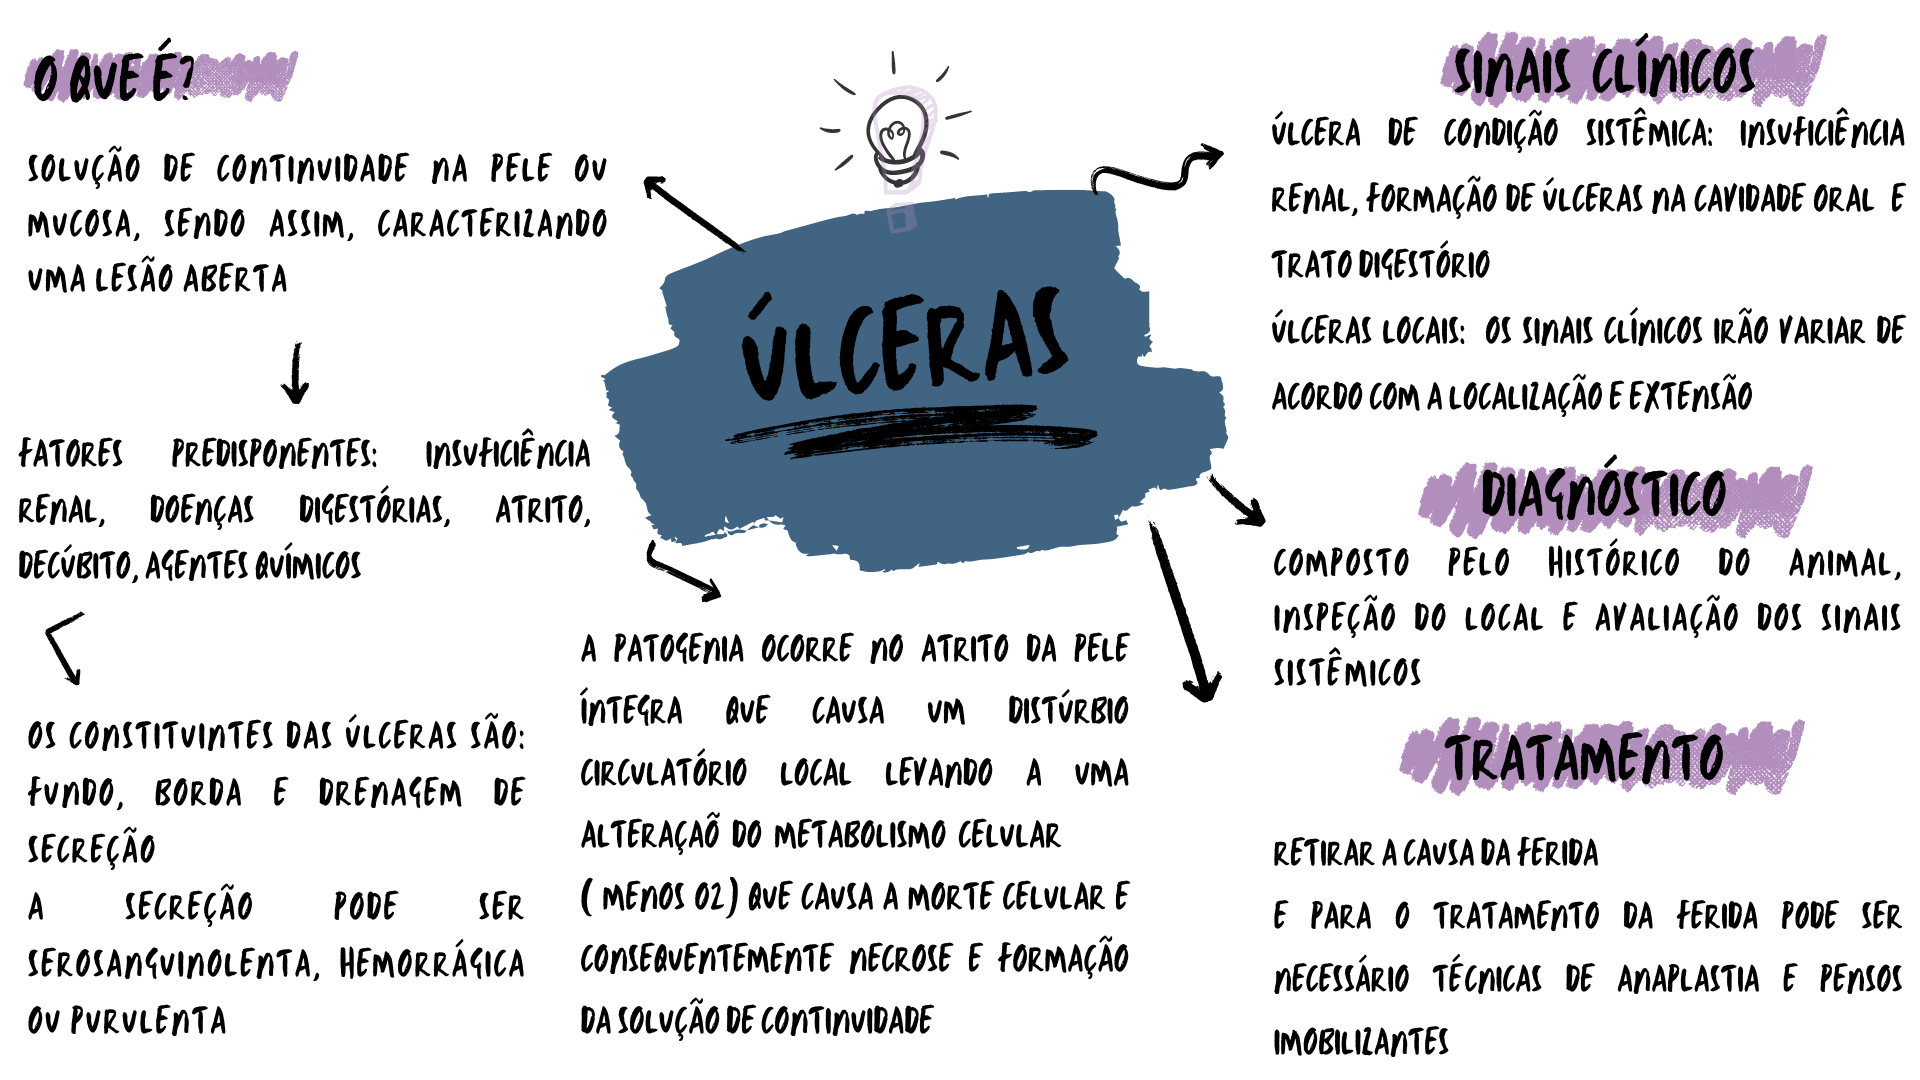 O QUE É?
SOLUÇÃO DE CONTINUIDADE NA PELE OU
MUCOSA, SENDO ASSIM, CARACTERIZANDO
UMA LESÃO ABERTA
FATORES PREDISPONENTES: INSUFICIÊNCIA
RENAL, DOENÇAS DIGESTÓRIAS, ATRITO,
DECÚBITO, AGENTES QUÍMICOS
OS CONSTITUINTES DAS ÚLCERAS SÃO:
FUNDO, BORDA E DRENAGEM DE
SECREÇÃO
A SECREÇÃO PODE SER
SEROSANGUINOLENTA, HEMORRÁGICA
OU PURULENTA
ÚLCERAS
A PATOGENIA OCORRE NO ATRITO DA PELE
ÍNTEGRA QUE CAUSA UM DISTÚRBIO
CIRCULATÓRIO LOCAL LEVANDO A UMA
ALTERAÇAÕ DO METABOLISMO CELULAR
( MENOS O2) QUE CAUSA A MORTE CELULAR E
CONSEQUENTEMENTE NECROSE E FORMAÇÃO
DA SOLUÇÃO DE CONTINUIDADE
SINAIS CLÍNICOS
ÚLCERA DE CONDIÇÃO SISTÊMICA: INSUFICIÊNCIA
RENAL, FORMAÇÃO DE ÚLCERAS NA CAVIDADE ORAL E
TRATO DIGESTÓRIO
ÚLCERAS LOCAIS: OS SINAIS CLÍNICOS IRÃO VARIAR DE
ACORDO COM A LOCALIZAÇÃO E EXTENSÃO
DIAGNÓSTICO
COMPOSTO PELO HISTÓRICO DO ANIMAL,
INSPEÇÃO DO LOCAL E AVALIAÇÃO DOS SINAIS
SISTÊMICOS
TRATAMENTO
RETIRAR A CAUSA DA FERIDA
E PARA O TRATAMENTO DA FERIDA PODE SER
NECESSÁRIO TÉCNICAS DE ANAPLASTIA E PENSOS
IMOBILIZANTES